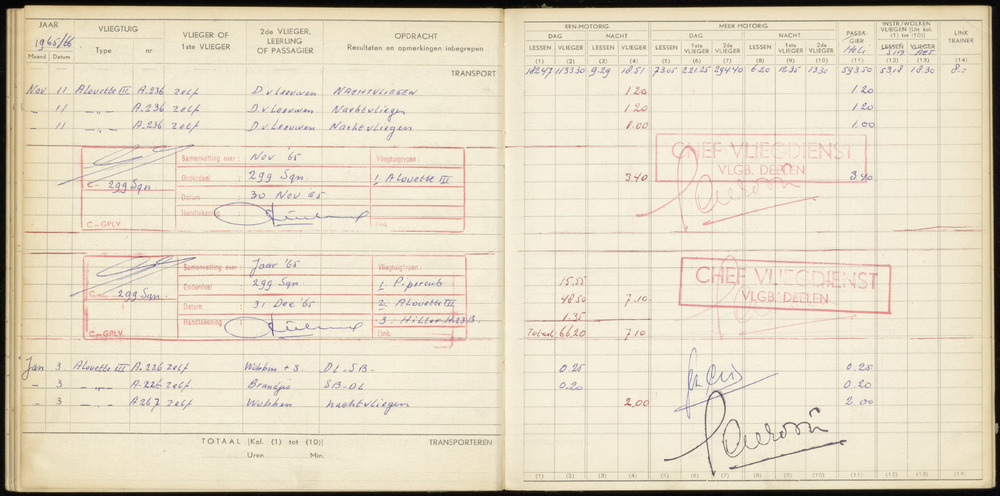 JAAR
1965/66
Maand Datum
VLIEGTUIG
Type nr
VLIEGER OF
1ste VLIEGER
2de VLIEGER,
LEERLING
OF PASSAGIER
OPDRACHT
Resultaten en opmerkingen inbegrepen
TRANSPORT
Nov 11 Alouette III A.236 zelf D.v Leeuwen Nachtvliegen
- 11 -„- A.236 zelf D.v Leeuwen Nachtvliegen
- 11 -„- A.236 zelf D.v Leeuwen Nachtvliegen
C- 299 Sqn
C-GPLV
Samenvatting over : Nov '65
Onderdeel : 299 Sqn.
Datum : 30 Nov '65
Handtekening :
Vliegtuigtypen :
1. Alouette III
t.ink.
C- 299 Sqn.
C-GPLV
Samenvatting over : Jaar '65
Onderdeel : 299 Sqn.
Datum : 31 Dec '65
Handtekening :
Vliegtuigtypen :
1 Pipercub
2. Alouette III
3. Hiller H.23B.
t.ink.
Jan 3 Alouette III A.226 zelf Wobben + 3 DL-SB-
- 3 -„- A-226 zelf SB-DL
- 3 -„- A.267 zelf Wobben nachtvliegen
TOTAAL (Kol. (1) tot (10)) TRANSPORTEREN
Uren Min.
EEN-MOTORIG
DAG NACHT
LESSEN VLIEGER LESSEN VLIEGER
(1) (2) (3) (4)
MEER MOTORIG
DAG NACHT
LESSEN 1ste VLIEGER 2de VLIEGER LESSEN 1ste VLIEGER 2de VLIEGER
(5) (6) (7) (8) (9) (10)
PASSAGIER
Heli
(11)
INSTR./WOLKEN
VLIEGEN [Uit kol.
(1) tot (10)]
LESSEN VLIEGER
SIM ACT
(12) (13)
LINK
TRAINER
(14)
182.47 1133.30 9.29 18.51 73.05 221.25 294.40 6.20 12.35 13.30 593.50 53.18 18.30 8.-
1.20 1.20
1.20 1.20
1.00 1.00
CHEF VLIEGDIENST
VLGB. DEELEN
3.40 3.40
CHEF VLIEGDIENST
VLGB. DEELEN
15.55
48.50 7.10
1.35
Totaal 66.20 7.10
0.25 0.25
0.20 0.20
2.00 2.00
(1) (2) (3) (4) (5) (6) (7) (8) (9) (10) (11) (12) (13) (14)